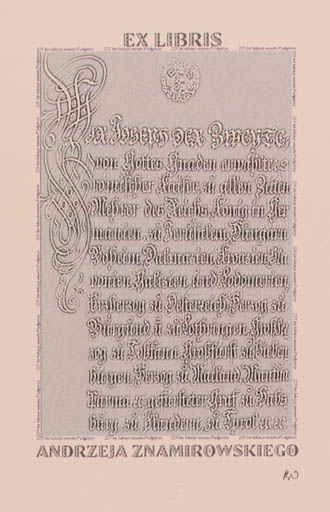 EX LIBRIS
225 lat lokacji miasta Podgórza
Joseph der Zweyte,
von Gottes Gnaden erwählter
römischer Kaiser, zu allen Zeiten
Mehrer des Reichs, König in Ger
manien, zu Jerusalem, Hungarn
Boheim, Dalmazien, Kroazien, Sla
vonien, Galizien, und Lodomerien
Erzherzog zu Oesterreich, Herzog zu
Burgund, u. zu Lothringen, Großher
zog zu Toskana, Großfürst zu Sieben
bürgen, Herzog zu Mailand, Mantua
Parma ec gefürsteter Graf zu Habs
burg, zu Flandern, zu Tyrol ec ec
225 lat lokacji miasta Podgórza
ANDRZEJA ZNAMIROWSKIEGO